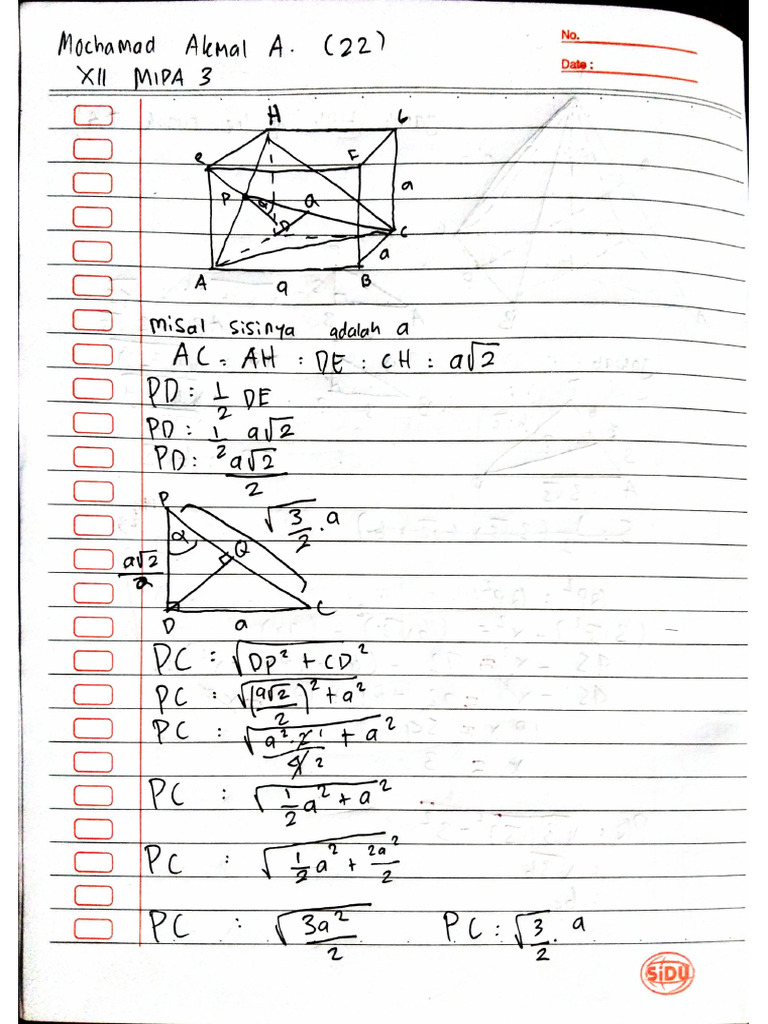 Mochamad Akmal A. (22)
No.
XII MIPA 3
Date :
H G
e F
P α Q a
D C
a
A a B
misal sisinya adalah a
AC = AH : DE : CH : a√2
PD : 1/2 DE
PD : 1/2 a√2
PD : a√2/2
P √3/2 . a
α Q
a√2/2
D a C
PC : √DP² + CD²
PC : √(a√2/2)² + a²
PC : √a² . 2 1/4 2 + a²
PC : √1/2 a² + a²
PC : √1/2 a² + 2a²/2
PC : √3a²/2 PC : √3/2 . a
SiDU